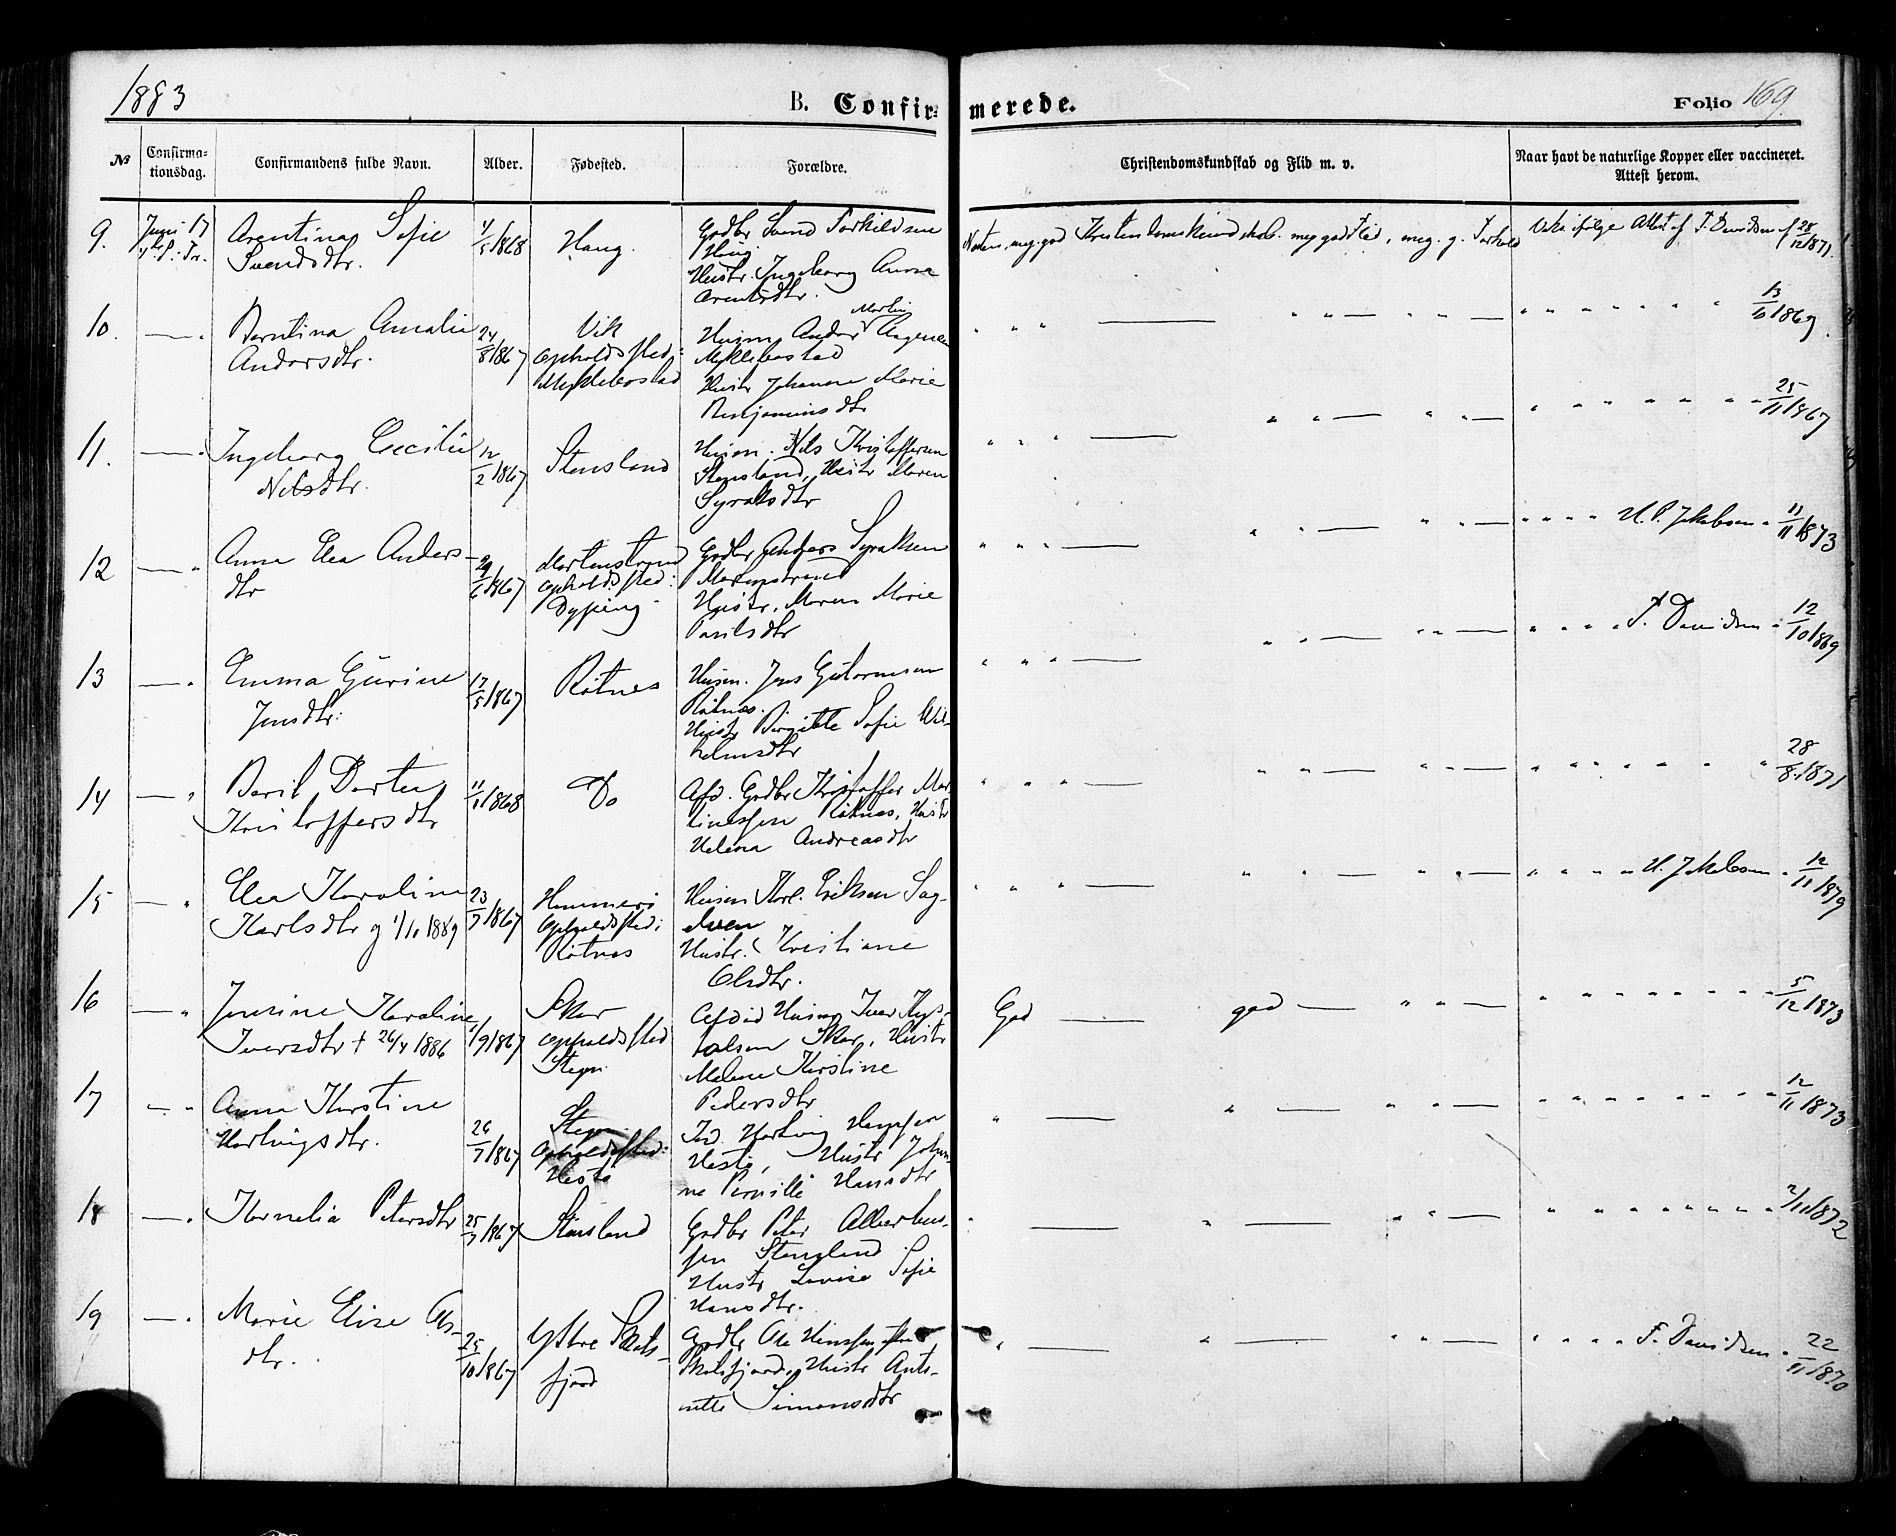 1883
B. Confir-
merede.
Folio 169.
№
Confirma-
tionsdag.
Confirmandens fulde Navn.
Alder.
Fødested.
Forældre.
Christendomskundskab og Flid m. v.
Naar havt de naturlige Kopper eller vaccineret.
Attest herom.
9.
Juni 17
Arentina Sofie
Svendsdtr.
4/5 1868
Haug.
Grdbr Svend Torkildsen
Haug
Hustr. Ingeborg Anna
Arentsdtr.
meg. god Kristendomskundskab. meg god Flid, meg. g. Forhold
Vac. ifølge Attest af F. Davidsen af 28/12 1871.
10.
— "
Berntina Amalie
Andersdtr.
24/8 1867
Vik
Opholdssted:
Myklebostad
Husm Anders Martin Aagesen
Myklebostad
Hustr Johanna Marie
Benjaminsdtr
" " " — " " — " " —
" " " " " " " 13/10 1869.
11.
— "
Ingeborg Cecilie
Nilsdtr.
12/2 1867
Stensland
Husm. Nils Kristoffersen
Stensland, Hustr Maren
Syraksdtr
" " " — " " — " " —
" " " " " " " 25/11 1867
12
— "
Anna Elea Anders-
dtr
29/6 1867
Martenstrand
Opholdssted:
Dyping
Grdbr Anders Syraksen
Martenstrand
Hustr. Maren Marie
Povelsdtr
" " " — " " — " " —
" " " " H. P. Jakobsen " 11/11 1873
13
— "
Emma Gurine
Jensdtr:
17/5 1867
Røtnes
Husm. Jens Gutormsen
Røtnes.
Hustr Birgitte Sofie Wil-
helmsdtr
" " " — " " — " " —
" " " " F. Davidsen " 12/10 1869
14
— "
Beril Dortea
Kristoffersdtr
11/1 1868
Do
Afd. Grdbr Kristoffer Mar-
tinussen Røtnes, Hustr
Helena Andreasdtr
" " " — " " — " " —
" " " " " " " 28/8 1871
15
— "
Elea Karoline
Karlsdtr g 1/11 1889
23/7 1867
Hammerø
Opholdssted:
Røtnes
Husm Karl Eriksen Sag-
elven
Hustr. Kristiane
Olsdtr.
" " " — " " — " " —
" " " " H. Jakobsen " 12/11 1879
16
— "
Jensine Karoline
Iversdtr † 26/4 1886
1/9 1867
Skar
Opholdssted
Stegn
Afdød Husm Iver Kys-
talsen Skar, Hustr
Malene Kirstine
Pedersdtr
God — god — " " —
" " " " " " " 5/12 1873
17
— "
Anna Kirstine
Hartvigsdtr.
26/7 1867
Stegn
Opholdssted:
Hestø
Ind. Hartvig Hansen
Hestø, Hustr Johan-
na Pernille Hansdtr
" — " — " " —
" " " " " " " 12/11 1873
18
— "
Kornelia Petersdtr
25/7 1867
Stensland
Grdbr Peter Albertsen
Stensland
Hustr Lovise Sofie
Hansdtr.
" — " — " " —
" " " " " " " 2/11 1872
19
— "
Marie Elise Ols-
dtr.
25/10 1867
Yttre Skots-
fjord
Grdbr Ole Hansen
Skotsfjord, Hustr Anto-
nette Simonsdtr
" — " — " " —
" " " " F. Davidsen " 22/11 1870